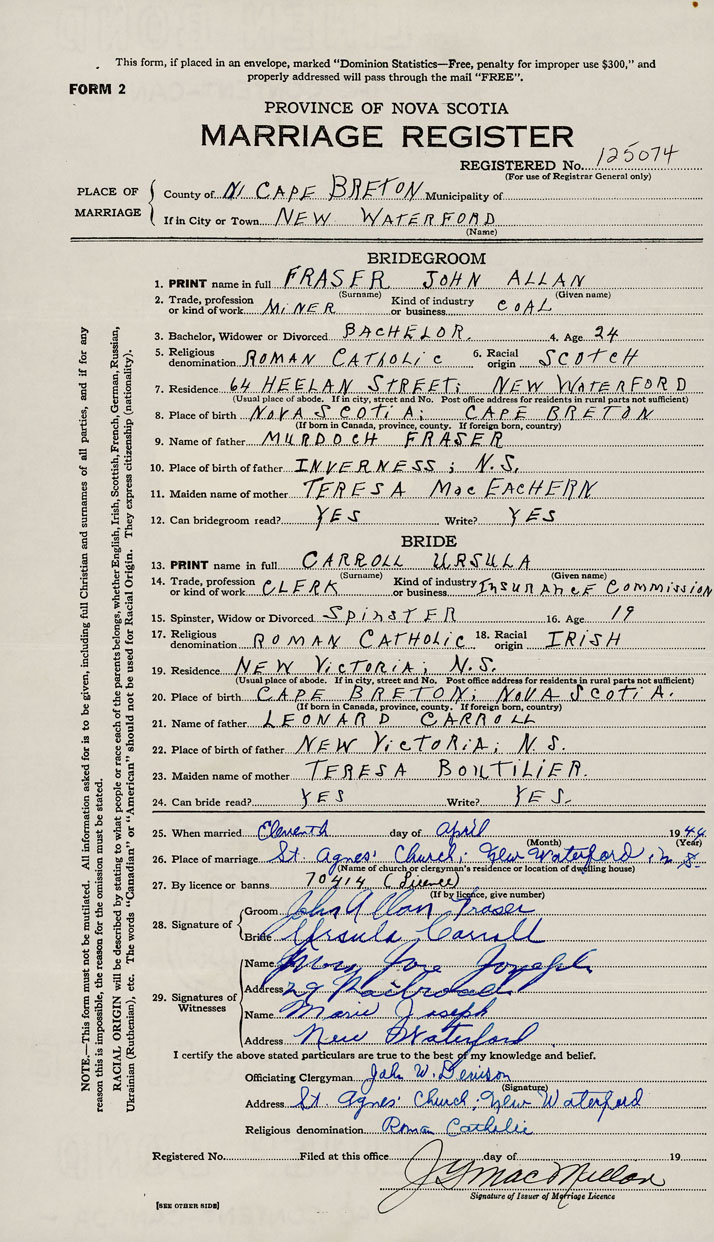 This form, if placed in an envelope, marked "Dominion Statistics—Free, penalty for improper use $300," and
properly addressed will pass through the mail "FREE".
FORM 2
PROVINCE OF NOVA SCOTIA
MARRIAGE REGISTER
REGISTERED No. 125074
(For use of Registrar General only)
PLACE OF MARRIAGE
County of N. CAPE BRETON Municipality of
If in City or Town NEW WATERFORD
(Name)
BRIDEGROOM
1. PRINT name in full FRASER JOHN ALLAN
(Surname) (Given name)
2. Trade, profession or kind of work MINER Kind of industry or business COAL
3. Bachelor, Widower or Divorced BACHELOR. 4. Age 24
5. Religious denomination ROMAN CATHOLIC 6. Racial origin SCOTCH
7. Residence 64 HEELAN STREET; NEW WATERFORD
(Usual place of abode. If in city, street and No. Post office address for residents in rural parts not sufficient)
8. Place of birth NOVA SCOTIA; CAPE BRETON
(If born in Canada, province, county. If foreign born, country)
9. Name of father MURDOCH FRASER
10. Place of birth of father INVERNESS; N.S.
11. Maiden name of mother TERESA MacEACHERN
12. Can bridegroom read? YES Write? YES
BRIDE
13. PRINT name in full CARROLL URSULA
(Surname) (Given name)
14. Trade, profession or kind of work CLERK Kind of industry or business INSURANCE COMMISSION
15. Spinster, Widow or Divorced SPINSTER 16. Age 19
17. Religious denomination ROMAN CATHOLIC 18. Racial origin IRISH
19. Residence NEW VICTORIA; N.S.
(Usual place of abode. If in city, street and No. Post office address for residents in rural parts not sufficient)
20. Place of birth CAPE BRETON; NOVA SCOTIA.
(If born in Canada, province, county. If foreign born, country)
21. Name of father LEONARD CARROLL
22. Place of birth of father NEW VICTORIA; N.S.
23. Maiden name of mother TERESA BOUTILIER.
24. Can bride read? YES Write? YES.
25. When married Eleventh day of April 1944
(Month) (Year)
26. Place of marriage St. Agnes' Church; New Waterford
(Name of church or clergyman's residence or location of dwelling house)
27. By licence or banns 70414 (Licence)
(If by licence, give number)
28. Signature of
Groom John Allan Fraser
Bride Ursula Carroll
29. Signatures of Witnesses
Name Joseph
Address 29 Railroad
Name Marie Joseph
Address New Waterford
I certify the above stated particulars are true to the best of my knowledge and belief.
Officiating Clergyman John W. Denison
(Signature)
Address St. Agnes' Church; New Waterford
Religious denomination Roman Catholic
Registered No. Filed at this office day of 19
J G MacMillan
Signature of Issuer of Marriage Licence
[SEE OTHER SIDE]
NOTE.—This form must not be mutilated. All information asked for is to be given, including full Christian and surnames of all parties, and if for any
reason this is impossible, the reason for the omission must be stated.
RACIAL ORIGIN will be described by stating to what people or race each of the parents belongs, whether English, Irish, Scottish, French, German, Russian,
Ukrainian (Ruthenian), etc. The words "Canadian" or "American" should not be used for Racial Origin. They express citizenship (nationality).